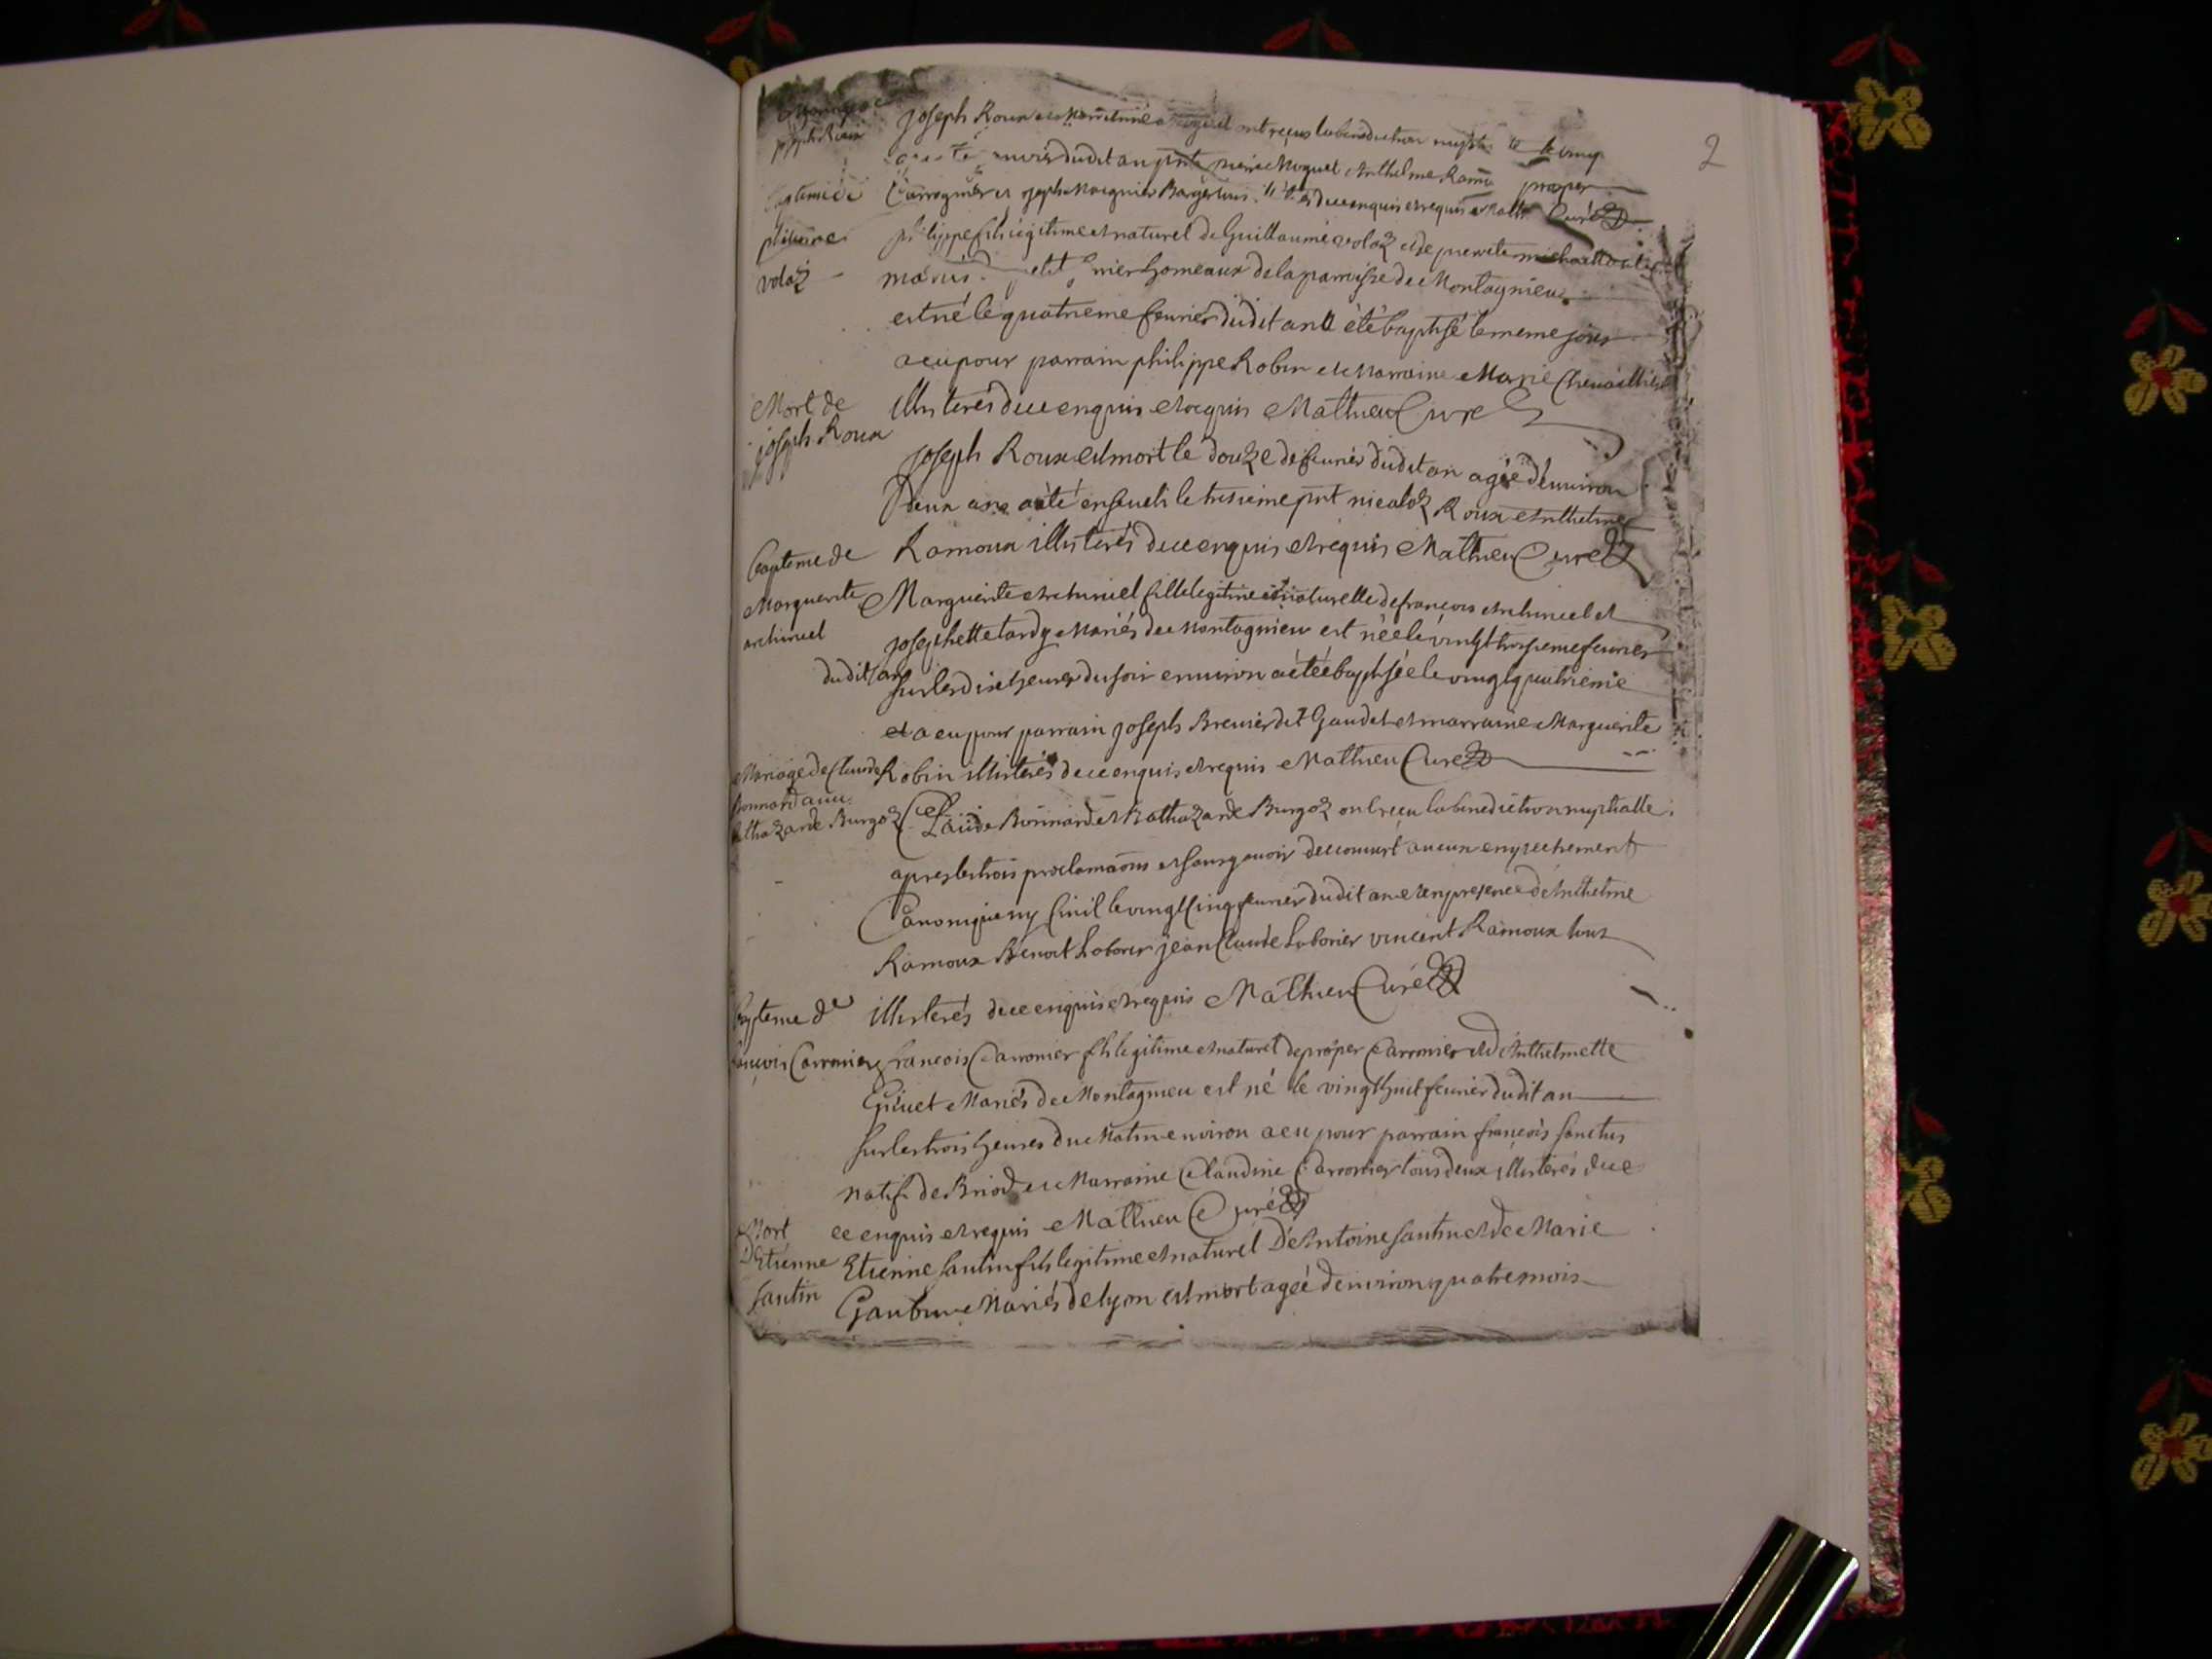 2
Joseph Roux ont reçus la benediction nupt le vingt
dudit an Moquet Anthelme Ramou prosper
bapteme de Carronier et joseph illiterés de ce enquis et requis Math Curé
philippe philippe fils légitime et naturel de Guillaume voloz et de pierrette
voloz mariés homeaux de la parroisse de Montagnieu
est né le quatrieme fevrier dudit an a été baptisé le meme jour
a eu pour parrain philippe Robin et Marraine Marie Chevaillier
Mort de illisterés de ce enquis et requis Mathieu Curé
joseph Roux
joseph Roux est mort le douze de fevrier dudit an agée d'environ
deux ans a été enseveli le treisieme pnt nicoloz Roux Anthelme
bapteme de Ramoux illisterés de ce enquis et requis Mathieu Curé
Marguerite Marguerite Archiruel fille legitime et naturelle de francois Archiruel et
archiruel josephette tardy Mariés de Montagnieu est née le vingt troisieme fevrier
dudit an sur les dix heures du soir environ a étée baptisée le vingt quatrieme
et a eu pour parrain joseph Brevier dit Gaudet et marraine Marguerite
Mariage de Claude Robin illisterés de ce enquis et requis Mathieu Curé
Bonnard avec
Balthazarde Burgoz Claude Bonnard et Balthazarde Burgoz ont reçu la benediction nuptialle
apres les trois proclamaõns et sans avoir decouvert aucun empechement
Canonique ny Civil le vingt Cinq fevrier dudit an et en presence d'Anthelme
Ramoux Benoit Laborier jean Claude Laborier vincent Ramoux tous
bapteme de illisterés de ce enquis et requis Mathieu Curé
francois Carronier francois Carronier fils legitime et naturel de prosper Carronier et d'Anthelmette
Mariés de Montagnieu est né le vingt huit fevrier dudit an
sur les trois heures du Matin environ a eu pour parrain françois sanctus
natif de Briord et Marraine Claudine Carronier tous deux illisterés de ce
Mort ce enquis et requis Mathieu Curé
D'Etienne Etienne santin fils legitime et naturel D'Antoine santin et de Marie
santin Mariés de lyon est mort agée d'environ quatre mois